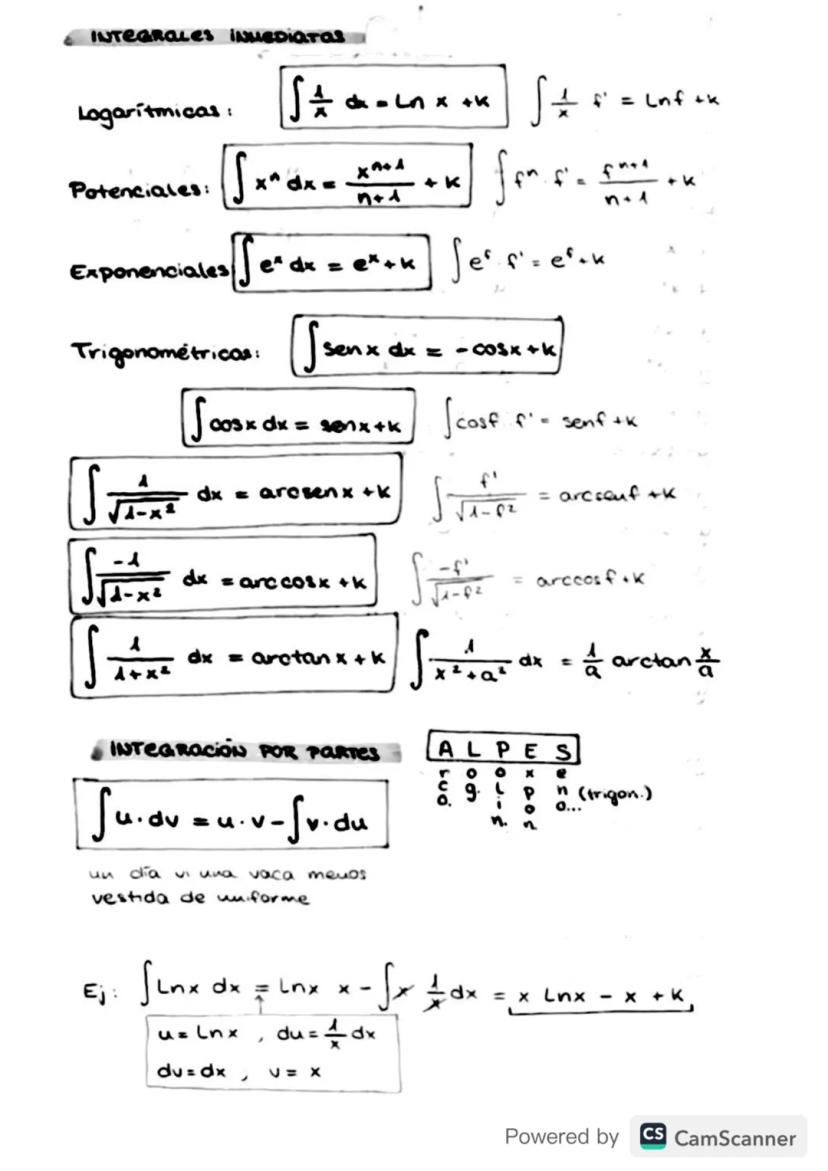 INTEGRALES INMEDIATAS
Logarítmicas: ∫ 1/x dx = Ln x + k ∫ 1/x f' = Lnf + k
Potenciales: ∫ xⁿ dx = xⁿ⁺¹/n+1 + k ∫ fⁿ · f' = fⁿ⁺¹/n+1 + k
Exponenciales ∫ eˣ dx = eˣ + k ∫ eᶠ · f' = eᶠ + k
Trigonométricas: ∫ sen x dx = -cosx + k
∫ cosx dx = senx + k ∫ cosf · f' = senf + k
∫ 1/√(1-x²) dx = arcsenx + k ∫ f'/√(1-f²) = arcsenf + k
∫ -1/√(1-x²) dx = arccosx + k ∫ -f'/√(1-f²) = arccosf + k
∫ 1/(1+x²) dx = arctanx + k ∫ 1/(x²+a²) dx = 1/a arctan x/a
INTEGRACIÓN POR PARTES
∫ u · dv = u · v - ∫ v · du
un día vi una vaca menos
vestida de uniforme
A L P E S
Arco. Log. Polin. Expon Seno... (trigon.)
Ej: ∫ Lnx dx = Lnx x - ∫ x 1/x dx = x Lnx - x + k
u = Lnx , du = 1/x dx
dv = dx , v = x
Powered by CS CamScanner